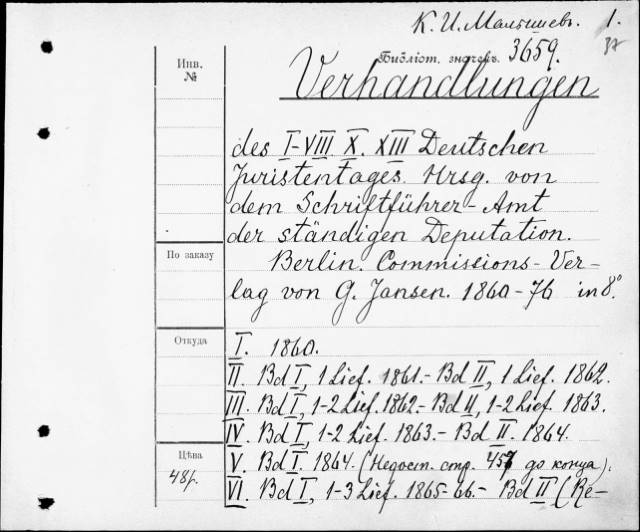 К. И. Малышевъ. 1.
37
Инв. №
Библіот. значекъ. 3659.
Verhandlungen
des I-VIII X. XIII Deutschen
Juristentages. Hrsg. von
dem Schriftführer-Amt
der ständigen Deputation.
По заказу
Berlin. Commissions-Ver-
lag von G. Jansen. 1860-76 in 8°.
Откуда
I. 1860.
II. Bd I, 1 Lief. 1861.- Bd II, 1 Lief. 1862.
III. Bd I, 1-2 Lief. 1862.- Bd II, 1-2 Lief. 1863.
IV. Bd I, 1-2 Lief. 1863.- Bd II. 1864.
Цѣна
V. Bd I. 1864. (Недост. стр. 457 до конца).
48р.
VI. Bd I, 1-3 Lief. 1865-66.- Bd II (Re-